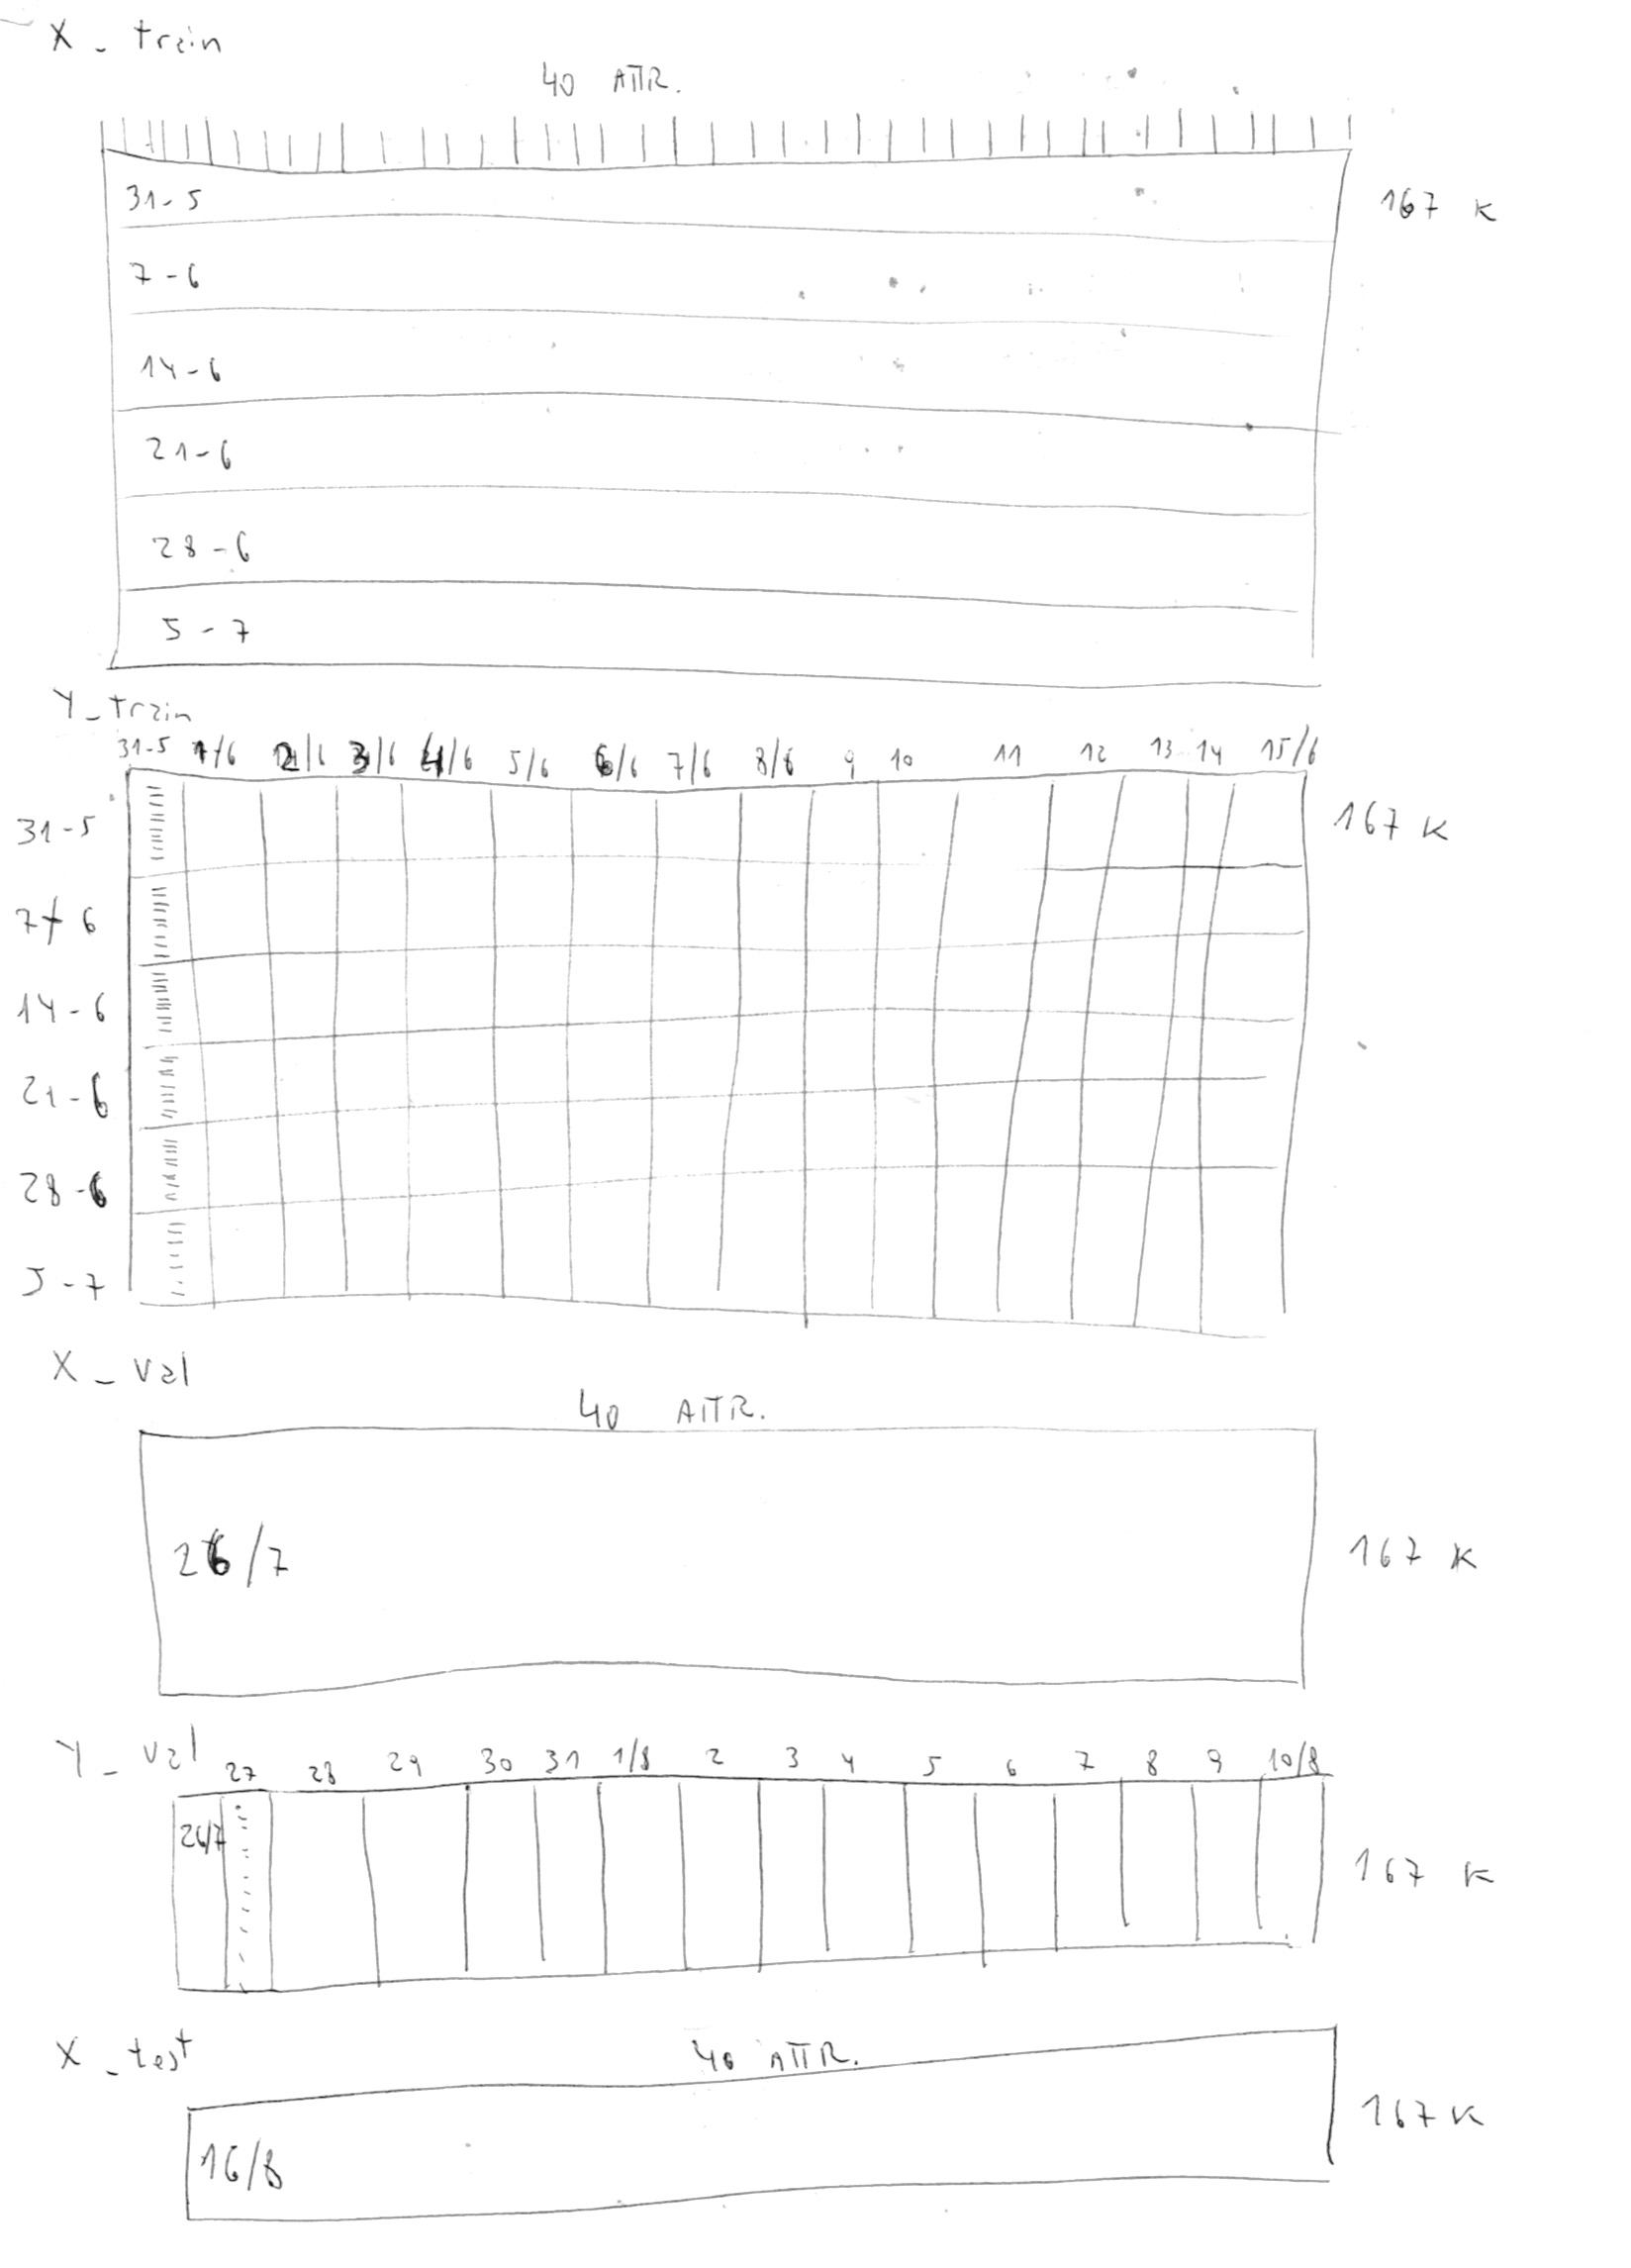 X_train
40 ATTR.
31-5
167 K
7-6
14-6
21-6
28-6
5-7
Y_train
31-5 1/6 2/6 3/6 4/6 5/6 6/6 7/6 8/6 9 10 11 12 13 14 15/6
31-5
167 K
7-6
14-6
21-6
28-6
5-7
X_val
40 ATTR.
26/7
167 K
Y_val
27 28 29 30 31 1/8 2 3 4 5 6 7 8 9 10/8
26/7
167 K
X_test
40 ATTR.
16/8
167 K